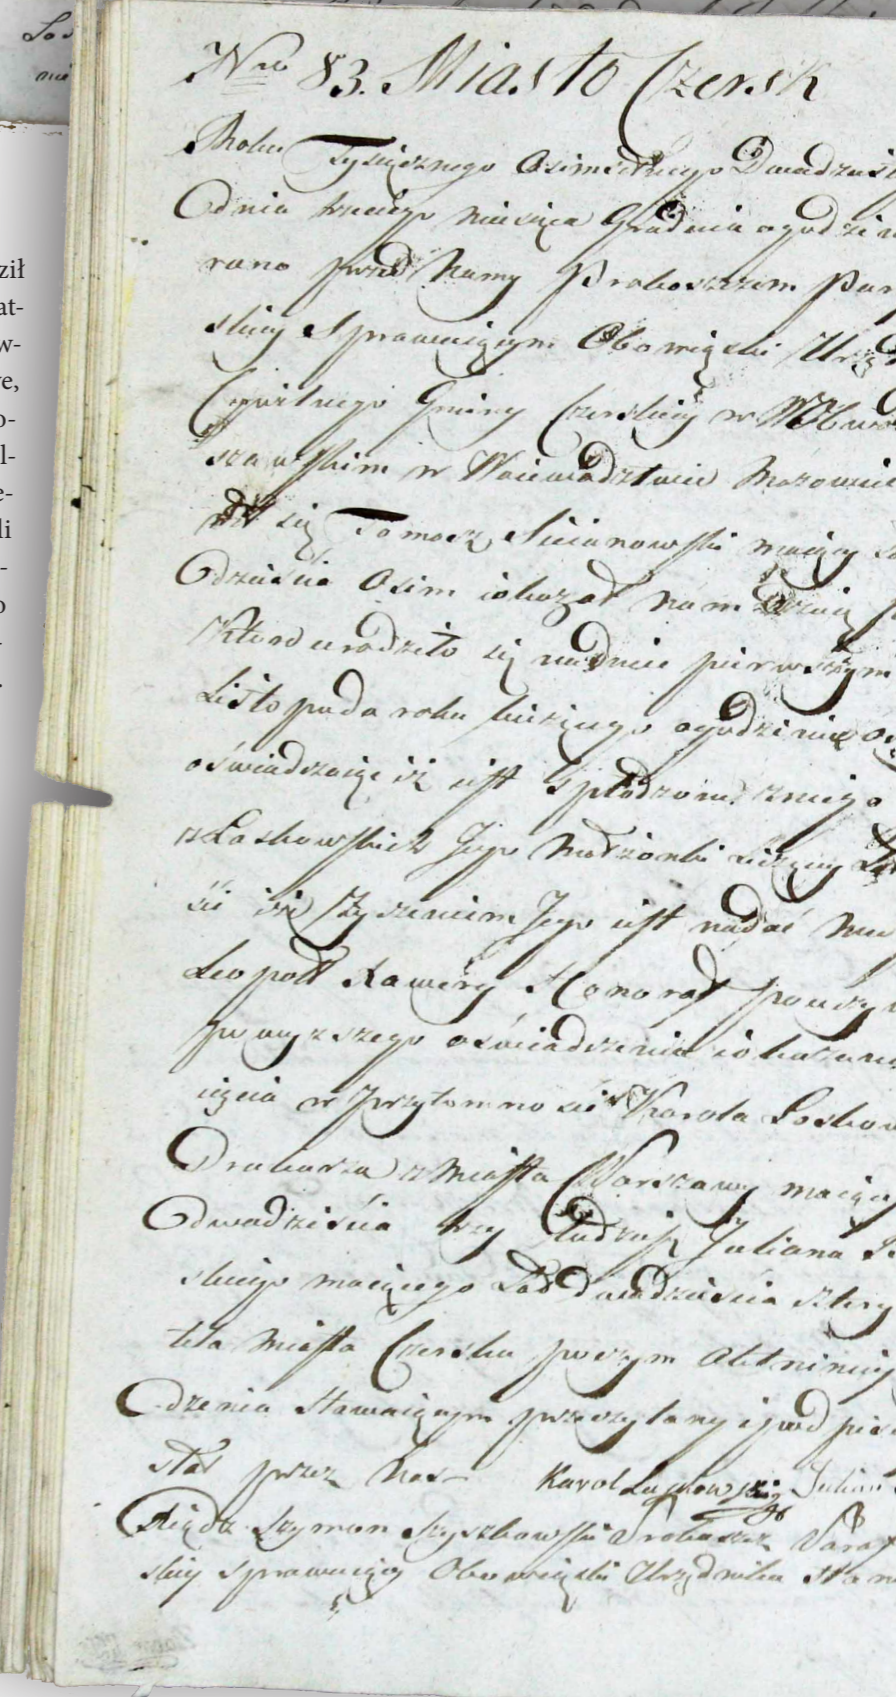 ził
at-
w-
e,
o-
l-
e-
li
-
o
-
.
Nro 83. Miasto Czersk
Roku Tysiącznego Osimsetnego Dwadzies
dnia trzeciego miesiąca Grudnia o godzin
rano przed Namy Proboszczem Par
skiey Sprawuiącym Obowiązki Urzę
Cywilnego Gminy Czerskiey w Obwo
szawskim w Woiewodztwie Mazowiec
wił się Tomasz maiący
dzieścia Osim i okazał nam Dziecię
Które urodziło się na dniu pierwszym
Listopada roku bieżącego o godzinie
oświadczaiąc iż iest spłodzone z niego
z Laskowskich Jego Małżonki Liczący
ści i że życzeniem Jego iest nadać mu
Leopold Xawery Honorat po uczy
powyższego oświadczenia i okazania
cięcia w przytomności Karola
Drukarza z Miasta Warszawy maiący
dwadzieścia trzy tudzież Juliana
skiego maiącego Lat dwadzieścia cztery
tela Miasta Czerska poczym Akt ninieyszy
dzenia Stawaiącym przeczytany i podpisa
stał przez Nas Karol Julian
Xiądz Szymon Szyszkowski Proboszcz Paraf
skiey sprawuiący Obowiązki Urzędnika Stan